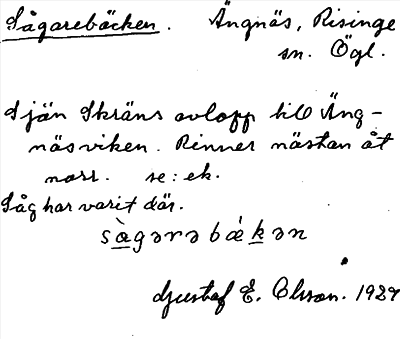 Sågarebäcken. Ängnäs, Risinge
sn. Ögl.
Sjön Skräns avlopp till Äng-
näsviken. Rinner nästan åt
norr. se: ek.
Såg har varit där.
sàgərəbákən
Gustaf E. Olsson. 1929